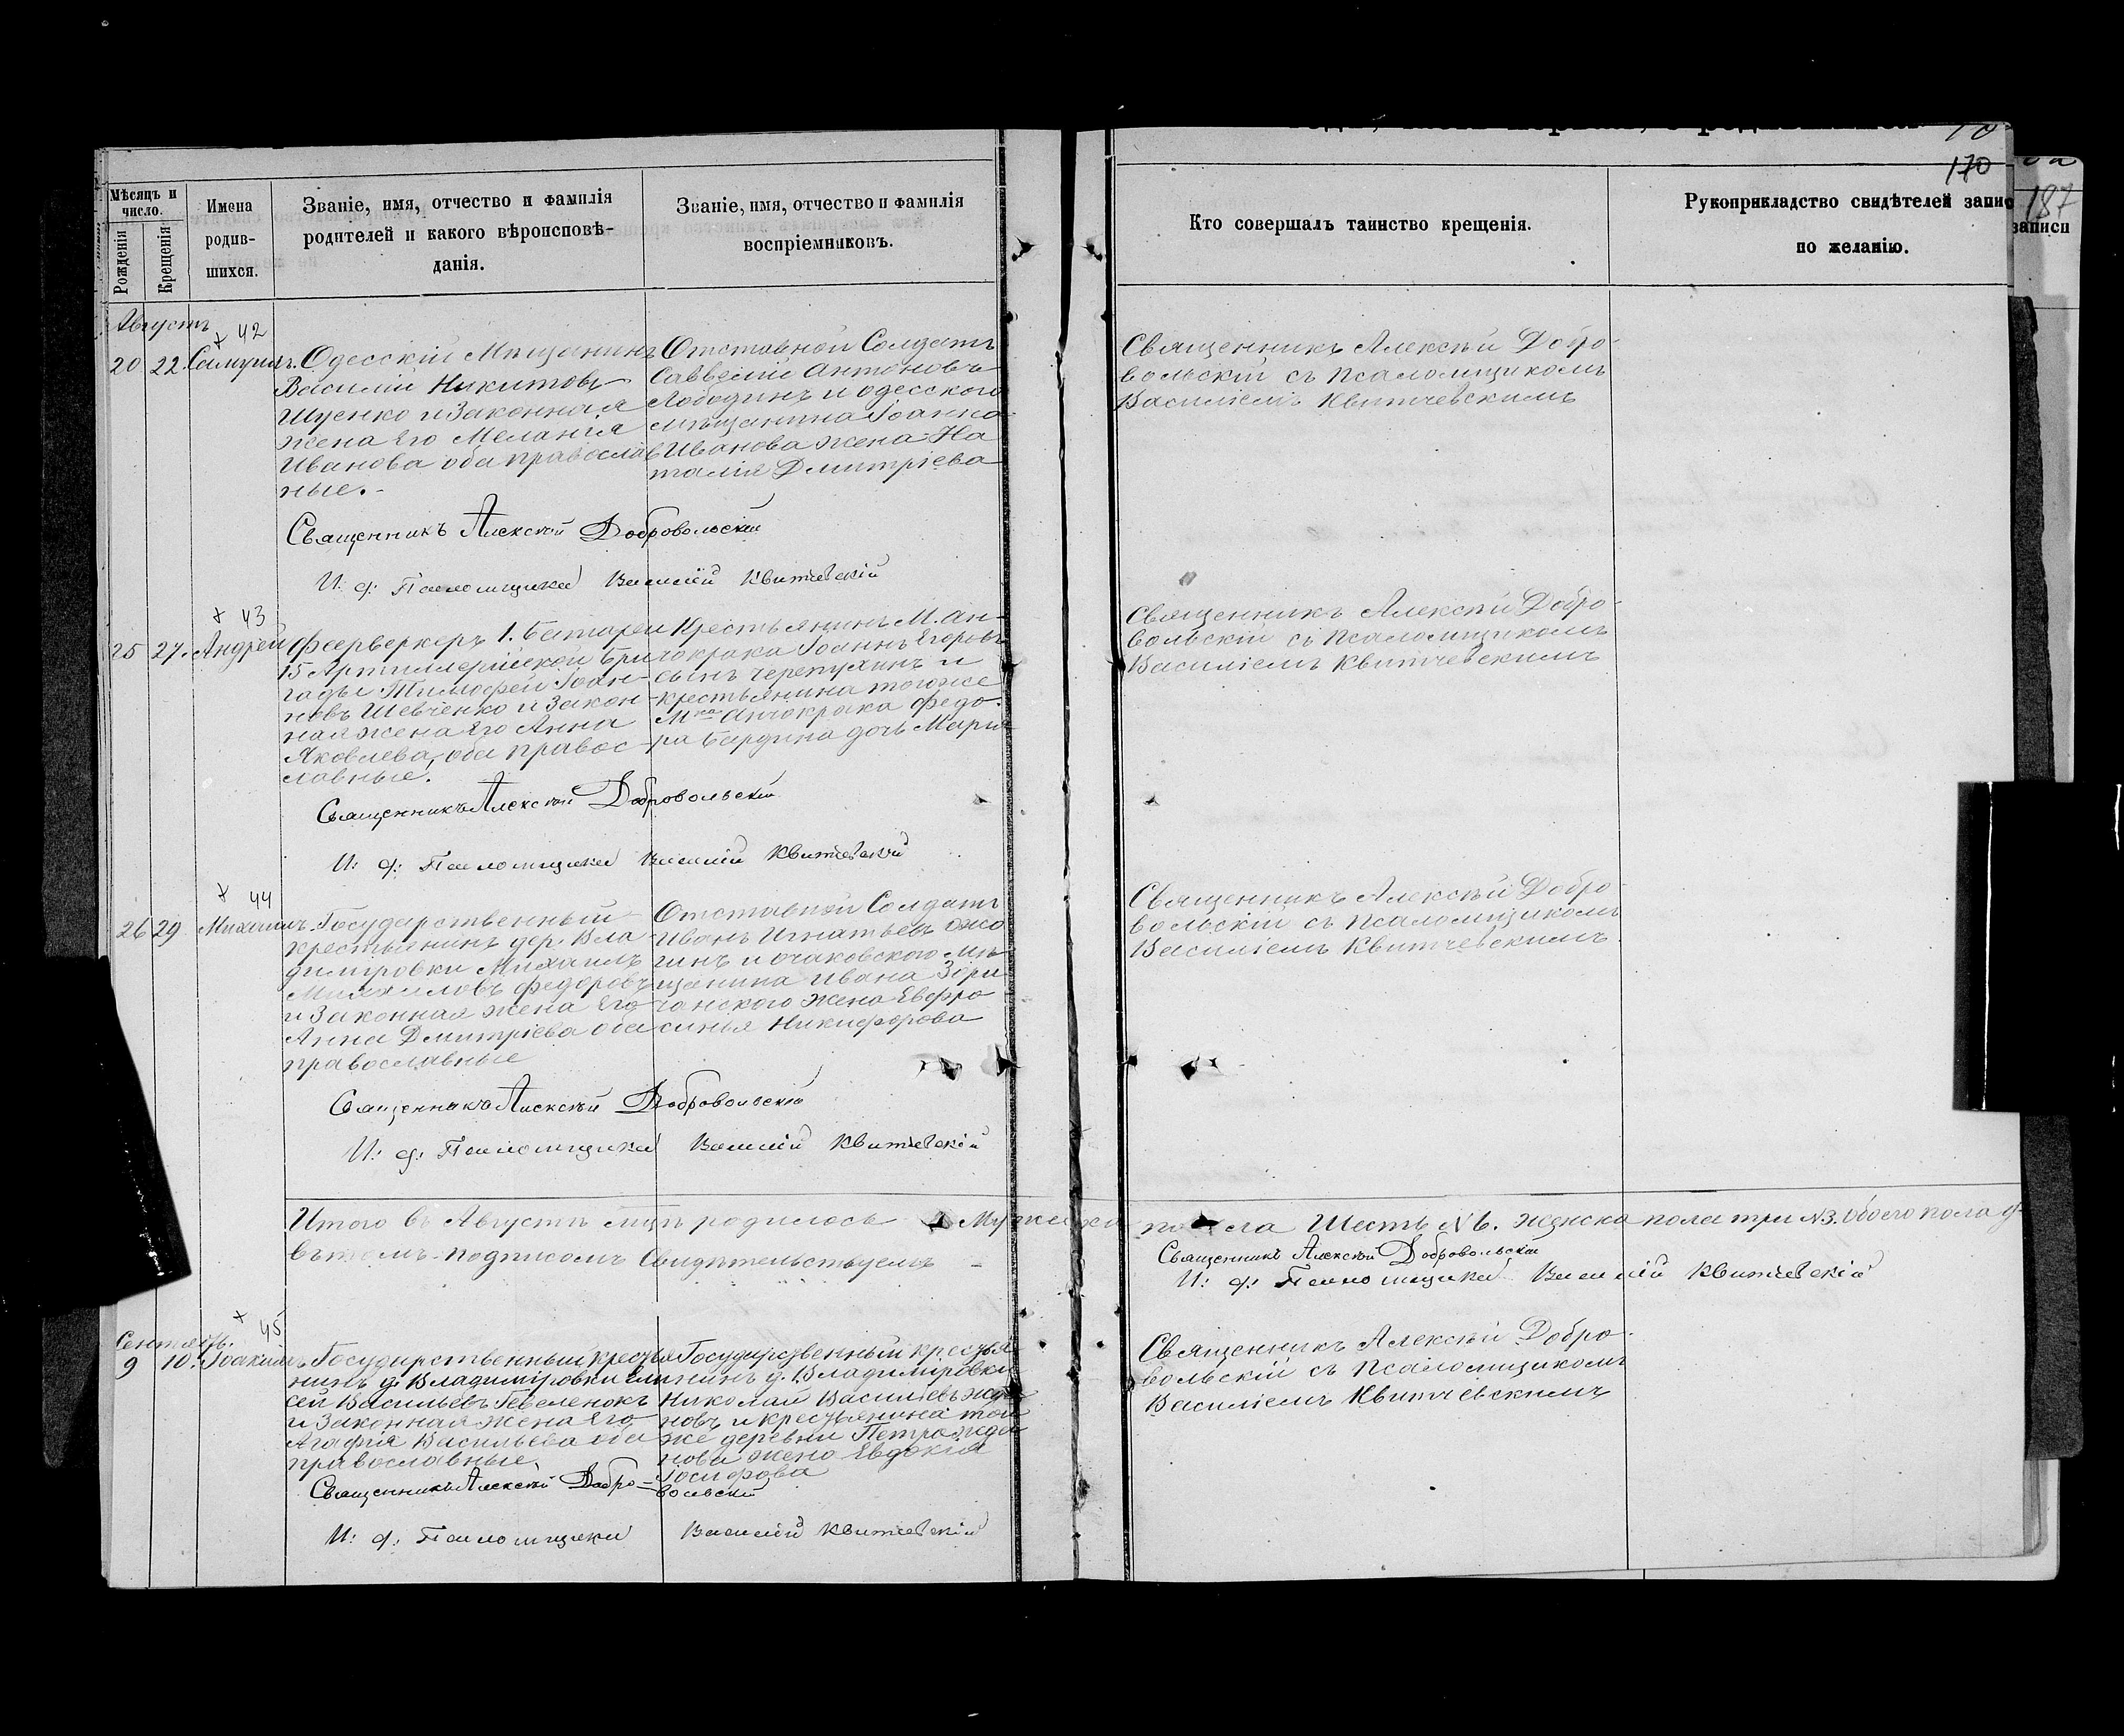 170
187
Мѣсяцъ и число.
Рожденія
Крещенія
Имена родив-шихся.
Званіе, имя, отчество и фамилія
родителей и какого вѣроисповѣ-
данія.
Званіе, имя, отчество и фамилія
воспріемниковъ.
Кто совершалъ таинство крещенія.
Рукоприкладство свидѣтелей запис
по желанію.
записи
Августъ
42
20 22. Самуилъ.
Одесскій Мѣщанинъ
Василій Никитовъ
и законная
жена его Меланія
Иванова оба православ
ные.-
Отставной Солдатъ
Савватій Антоновъ
Лободинъ и одесского
мѣщанина Іоанна
Иванова жена На
талія Дмитріева
Священникъ Алексѣй Добро-
вольскій съ псаломщикомъ
Василіемъ Квитчевскимъ
Священникъ Алексѣй Добровольскій
И: д: Псаломщика Василій Квитчевскій
43
25 27. Андрей
Феерверкеръ 1. батареи
15 Артиллерійской бри
гады Тимофей Іоан-
новъ Шевченко и закон
ная жена его Анна
Яковлева, оба правос-
лавные.
Крестьянинъ М. Ан-
чокрака Іоаннъ Егоровъ
сынъ Черепухинъ и
крестьянина тогоже
Анчокрака Федо-
ра Бардина дочь Марія
Священникъ Алексѣй Добро-
вольскій съ псаломщикомъ
Василіемъ Квитчевскимъ
Священникъ Алексѣй Добровольскій
И: д: Псаломщика Василій Квитчевскій
44
26 29 Михаилъ.
Государственный
крестьянинъ дер. Вла
димировки Михаилъ
Михаиловъ Федоровъ
и законная жена его
Анна Дмитріева оба
православные
Отставной Солдатъ
Иванъ Игнатьевъ Ожо
гинъ и очаковского мѣ
щанина Ивана Зори
чанского жена Евфро
синья Никифорова
Священникъ Алексѣй Добро-
вольскій съ псаломщикомъ
Василіемъ Квитчевскимъ
Священникъ Алексѣй Добровольскій
И: д: Псаломщика Василій Квитчевскій
Итого въ Августѣ мцѣ родилось Мужеска пола Шесть №6. женска пола три №3. Обоего пола
въ томъ подписомъ Свидѣтельствуемъ
Священникъ Алексѣй Добровольскій
И: д: Псаломщика Василій Квитчевскій
Сентябрь.
45
9 10. Іоакимъ
Государственный крестья
нинъ д. Владимировки
сей Васильевъ
и законная жена его
Агафія Васильева оба
православные
Государственный крестья
нинъ д. Владимировки
Николай Васильевъ Жда
новъ и крестьянина той
же деревни Петра Жда
нова жена Евдокія
Іосифова
Священникъ Алексѣй Добро-
вольскій съ псаломщикомъ
Василіемъ Квитчевскимъ
Священникъ Алексѣй Добро-
вольскій
И: д: Псаломщика Василій Квитчевскій